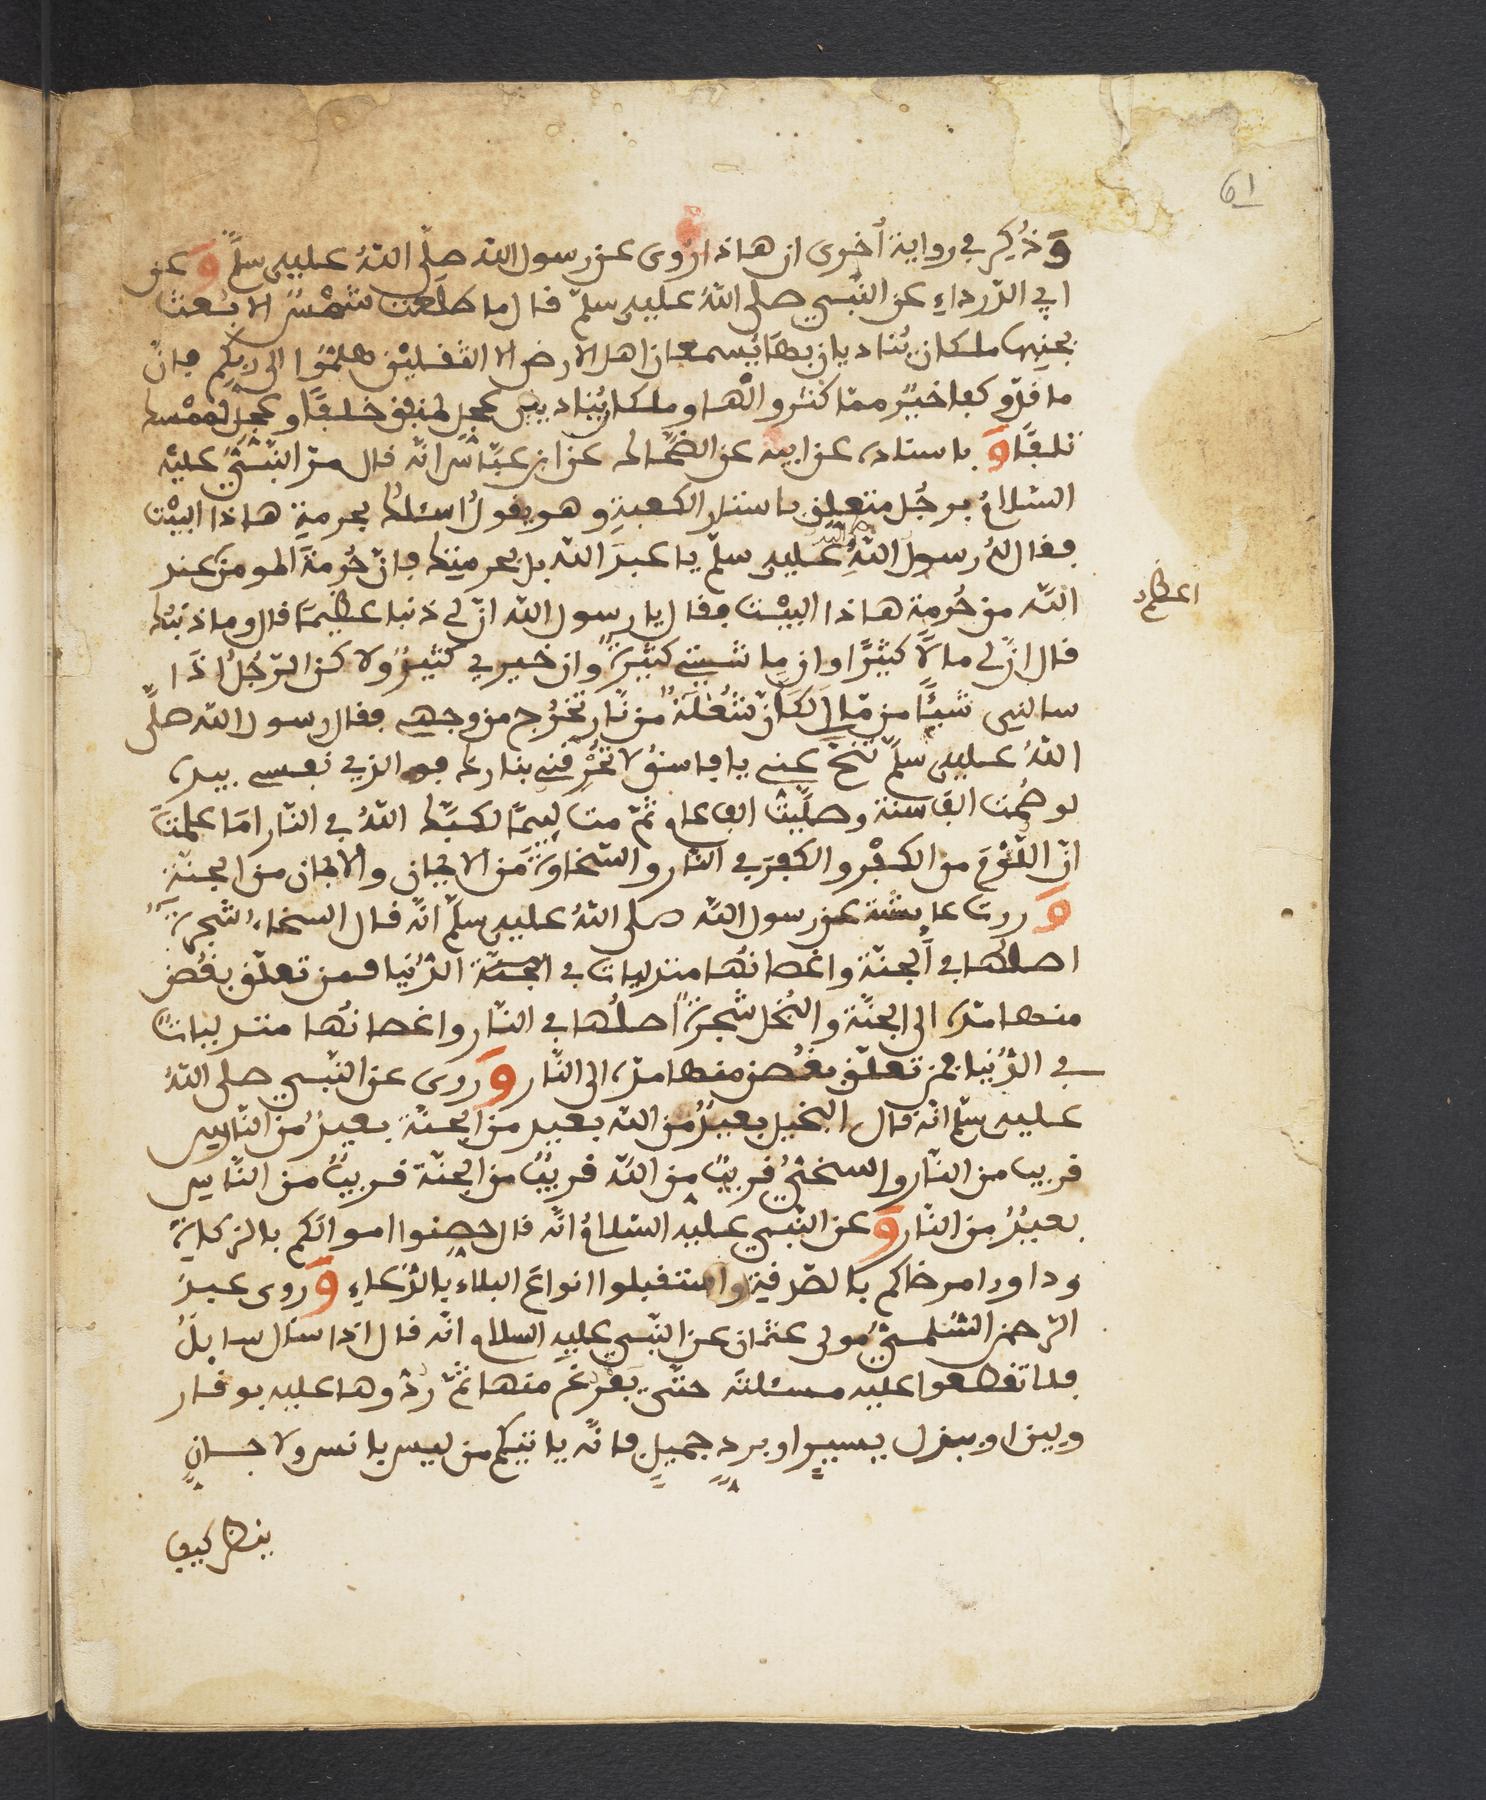 61
وَذُكِر في رواية أخرى ان هاذا رُوى عن رسول الله صلّى اللهُ عليه وسلّم وَعن
ابي الدّرداءِ عن النّبي صلى اللهُ عليه وسلّم قال ما طلَعت شمسٌ الا بُعث
بجنبيها ملكان يُناديان بها يُسمعان اهل الارض الا الثقلين هلمّوا الى ربّكم فانّ
ما قلّ وكفا خيرٌ ممّا كثر والها وملكان يُناديين عجل لمنفق خلفًا وعجل لممسك
تلفًا وَباسناده عن ابيه عن الضّحاك عن ابن عبّاس انّه قال مرّ النّبيّ عليه
السّلامُ برجُل متعلق باستار الكعبةِ وهو يقولُ اسئلك بحرمةِ هاذا البيْت
فقال لهُ رسول اللهِ صلى الله عليه وسلّم يا عبدَ الله بل بحرمتِك فانّ حُرمةَ المومن عند
اعظم
الله من حُرمة هاذا البيْت فقال يا رسول الله انّ لي ذنبا عظيمًا قال وما ذنبُك
قال انّ لي مالًا كثيرًا وان ماشيتي كثيرةٌ وان خيري كثيرٌ ولا كن الرّجُل اذَا
سالني شيئًا من مّالي لكانّ شُعْلَةً من نّار تخرُج من وجهه فقال رسول الله صلّى
اللهُ عليه وسلّم تنحّ عني يا فاسقُ لا تُحْرقني بنارك فو الذي نفسي بيده
لو صُمت الف سنة وصلّيت الف عام ثمّ مت لييمًا لكبّك اللهُ في النّار امَا علمتَ
انّ اللّوْمَ من الكفْر والكفرَ في النّار والسّخاوةَ من الايمان والايمان من الجنّة
وَروت عايشة عن رسول الله صلى اللهُ عليه وسلّم انّه قال السخاءُ شجرةٌ
اصلُها في الجنّة واغصانُها متدليات في الجنّة الدُّنيا فمن تعلّق بغُصْن
منها مدّه الى الجنّة والبُخل شجرةٌ اصلُها في النّار واغصانُها متدليات
في الدُّنيا فمن تعلّق بغُصن منها مدّه الى النّار وَروى عن النّبي صلى اللهُ
عليه وسلّم انّه قال البخيل بعيدٌ من الله بعيد من الجنّة بعيدٌ من النّاس
قريب من النّار والسخيّ قريبٌ من الله قريبٌ من الجنّة قريبٌ من النّاس
بعيدٌ من النّار وَعن النّبي عليه السّلامُ انّه قال حصنوا اموالكم بالزكاةِ
وداووا مرضاكم بالصّدقة واستقبلوا انواعَ البلاء بالدُّعاءِ وَروى عبدُ
الرّحمن السُّلميّ مولى عثمان عن النّبي عليه السلام انّه قال اذا سال سايلٌ
فلا تقطعوا عليه مسئلته حتّى يَفْرغ منها ثمّ ردّوها عليه بوقار
ولين او ببذل يسير او برد جميل فانّه ياتيكم من ليس بانس ولا جان
ينظر كيف